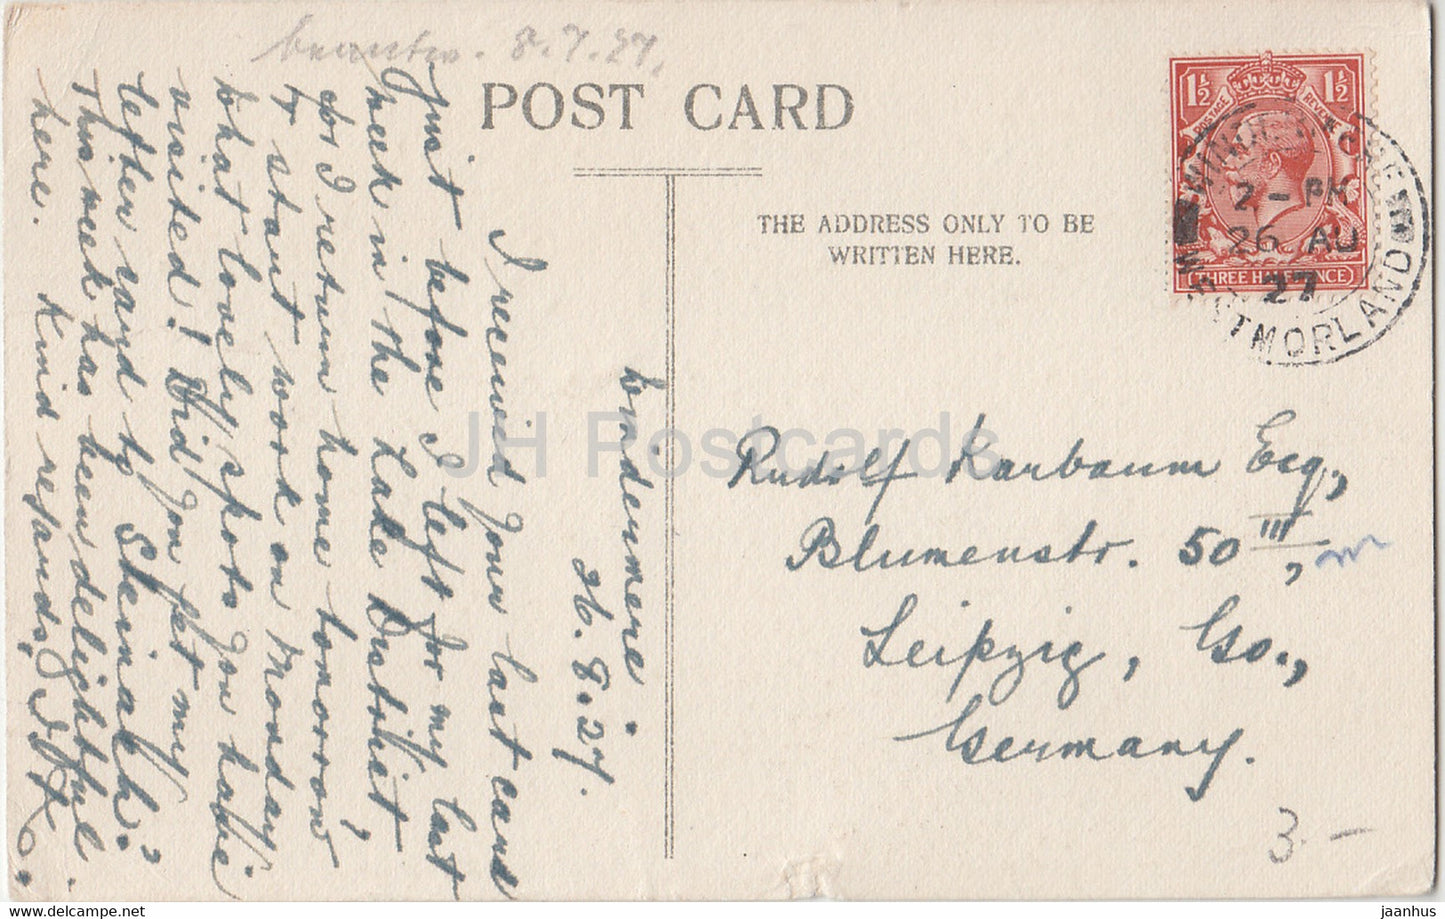 8.7.27.
POST CARD
THE ADDRESS ONLY TO BE
WRITTEN HERE.
1½ 1½
POSTAGE REVENUE
THREE HALF PENCE
WINDERMERE
2 - PM
26 AU
27
WESTMORLAND
Windermere
26.8.27.
I received your last card
just before I left for my last
week in the Lake District,
for I return home tomorrow
& start work on Monday.
What lovely spots you have
visited! Did you get my
letter sand by Steinach?
This week has been delightful
here. Kind regards,
Rudolf Karbaum Esq.,
Blumenstr. 50 III,
Leipzig, Go.,
Germany.
3.-
JH Postcards
jaanhus jaanhus.com